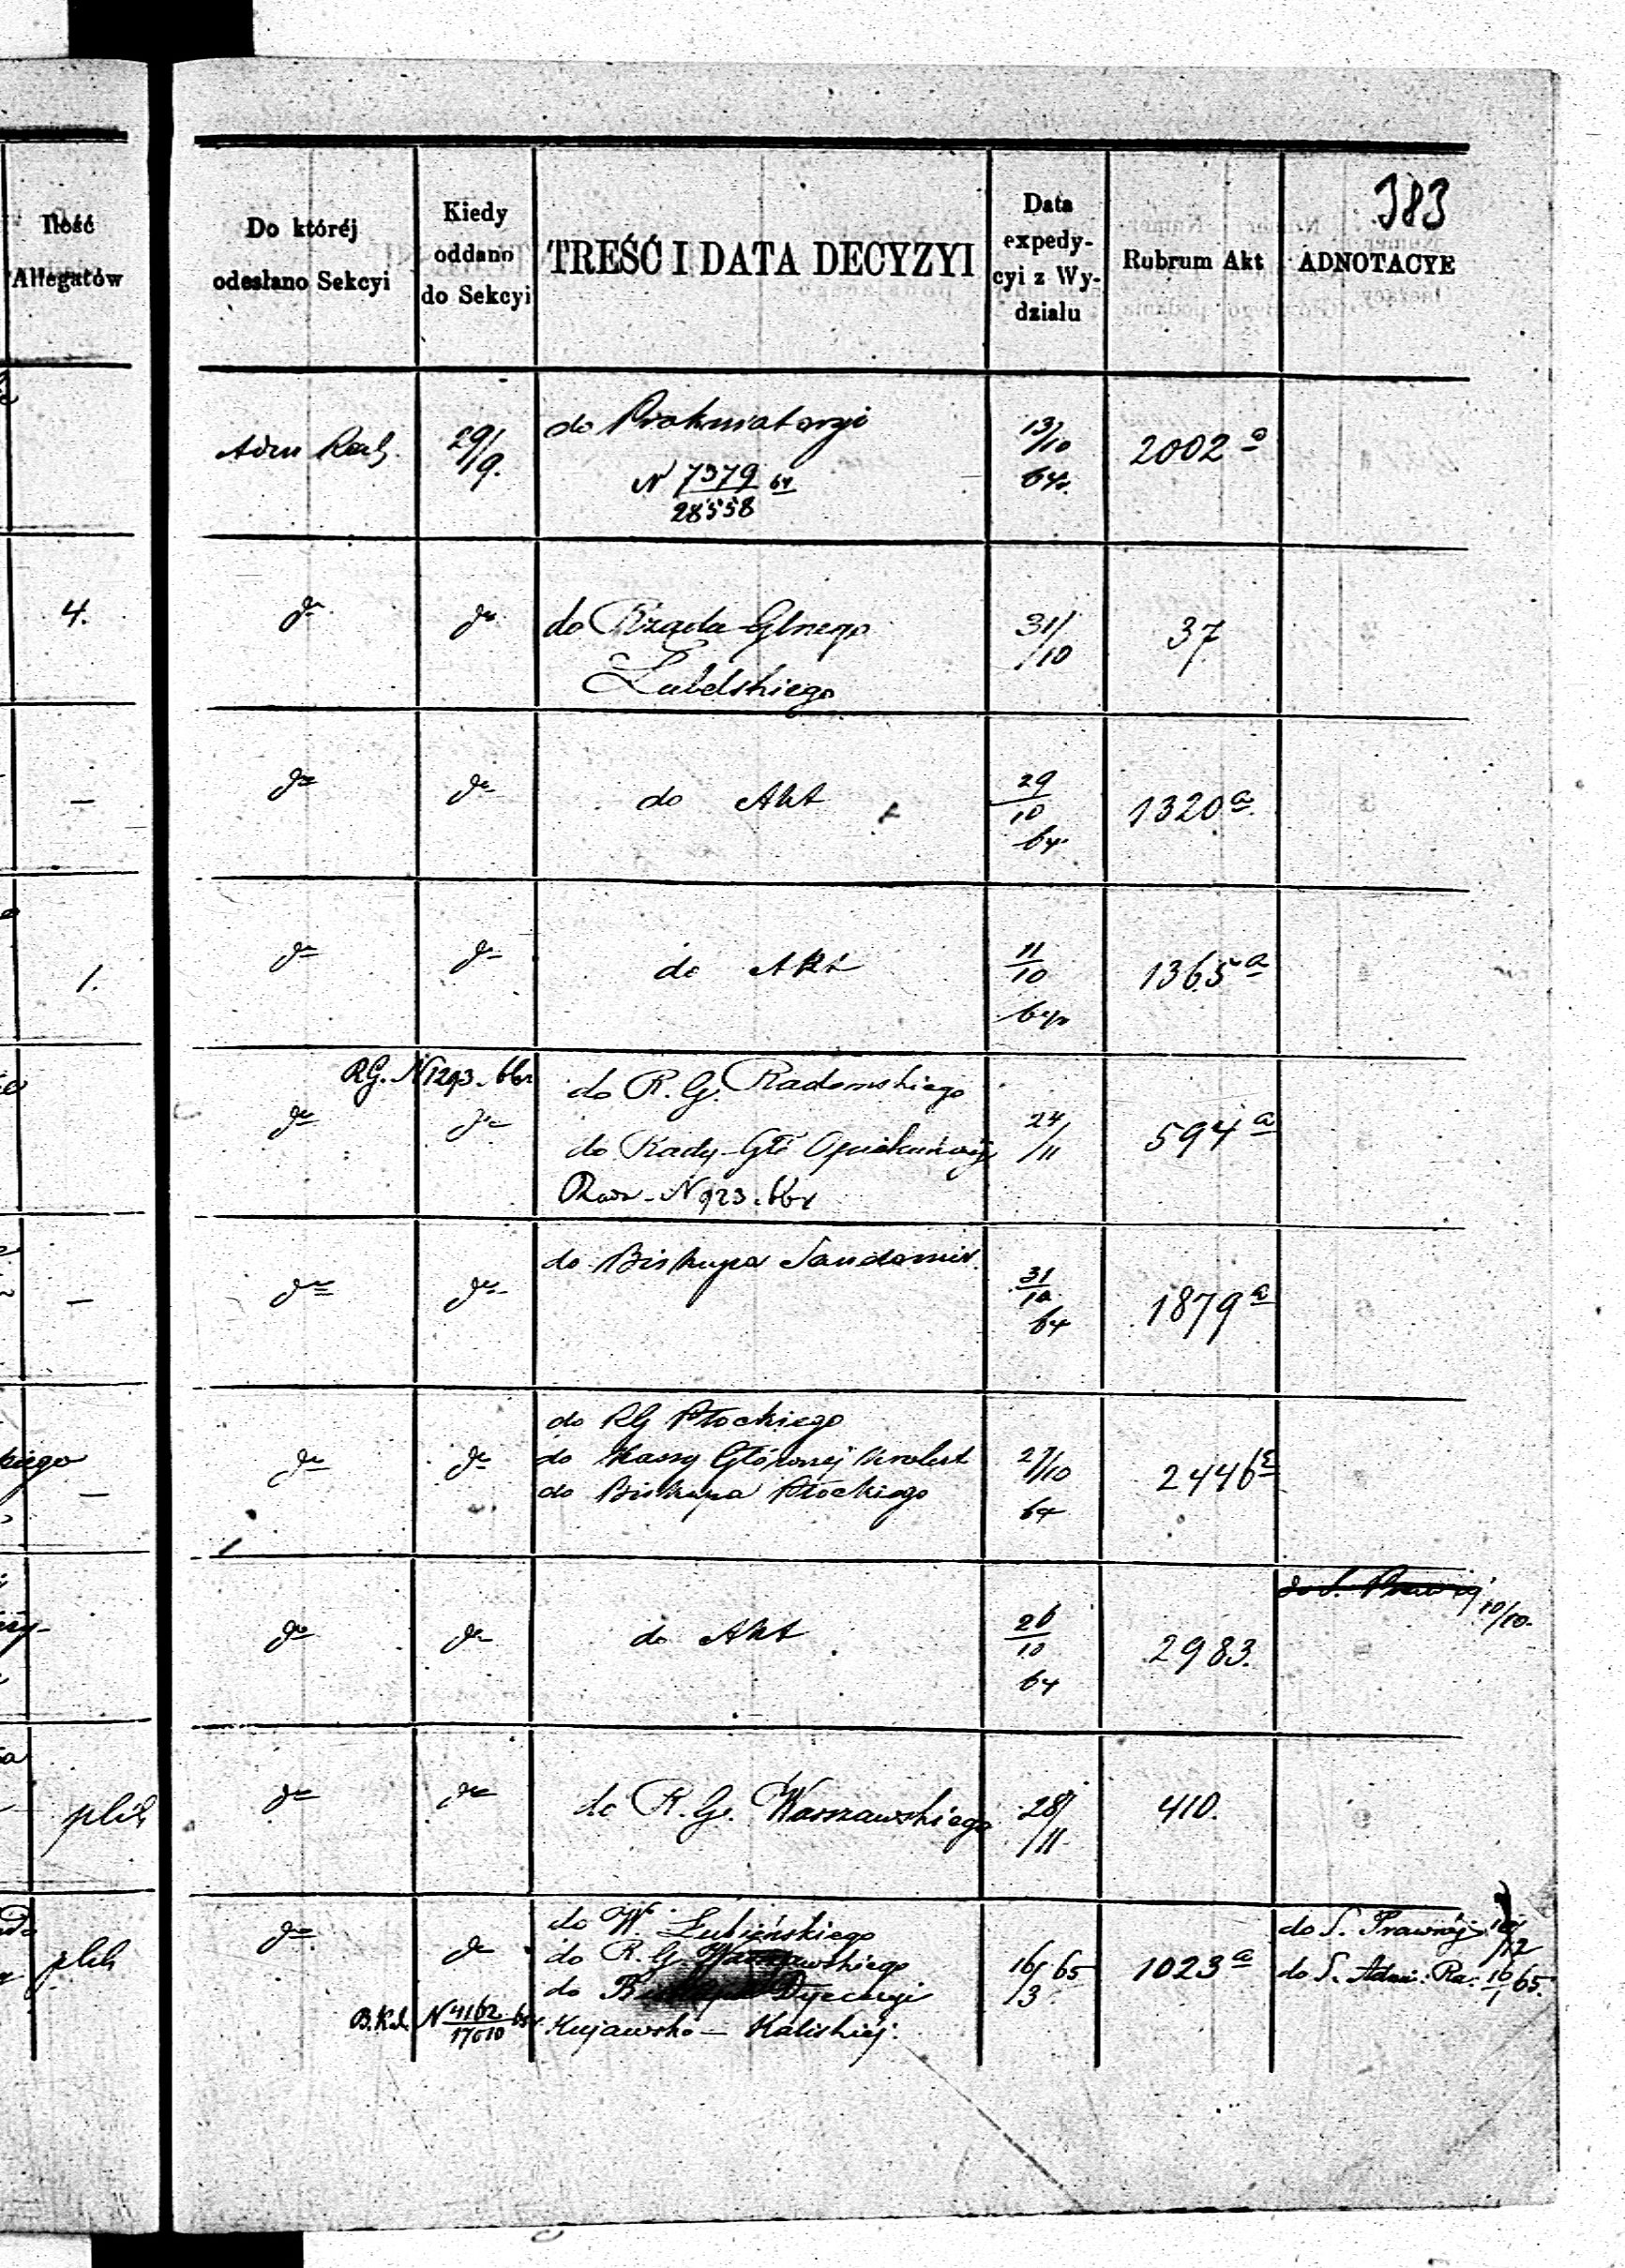 383
Ilość
Allegatów
Do któréj
odesłano Sekcyi
Kiedy
oddano
do Sekcyi
TREŚĆ I DATA DECYZYI
Data
expedy-
cyi z Wy-
działu
Rubrum Akt
ADNOTACYE
Adm Rach. 29/9. do Prokuratoryi 13/10 64. 2002 a
N 7379/28558 64
4. do do do Rządu Glnego 31/10 37
Lubelskiego
— do do do Akt 29/10 64 1320 a
1. do do do Akt 11/10 64 1365 a
RG. N 1293. 66
do do do R. G. Radomskiego 24/11 594 a
do Rady Głó Opiekuńczéj
N 923.
— do do do Biskupa Sandomir. 31/10 64 1879 a
do RG Płockiego
— do do do Kassy Głównéj 27/10 64 2446
do Biskupa Płockiego
do S. Prawnéj 10/10.
do do do Akt 26/10 64 2983.
plik do do do R. G. Warszawskiego 28/11 410.
do W. Lubieńskiego
do S. Prawnéj
plik do do do R. G. Warszawskiego 16/3 65 1023 a do S. Adm: Ra. 16/1 65.
do Dyecezyi
N 4162/17010 Kujawsko — Kaliskiéj.